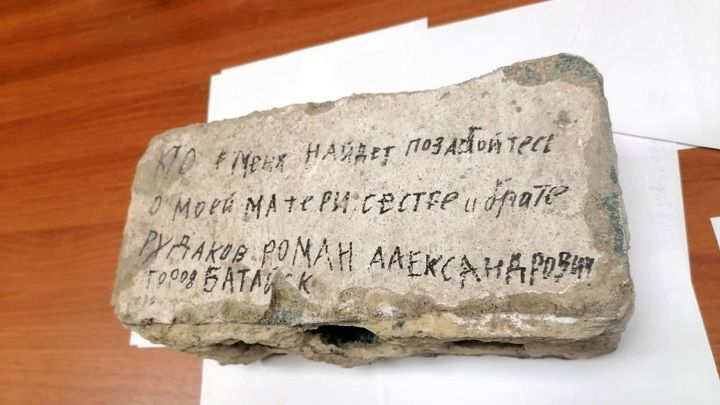 КТО меня НАЙдЕТ ПОЗАбОЙтесь
О МОЕЙ МАтЕРИ СЕСТРЕ и брАТЕ
РУДАКОВ РОМАН АЛЕКСАНДРОВИЧ
город БАТАЙСК